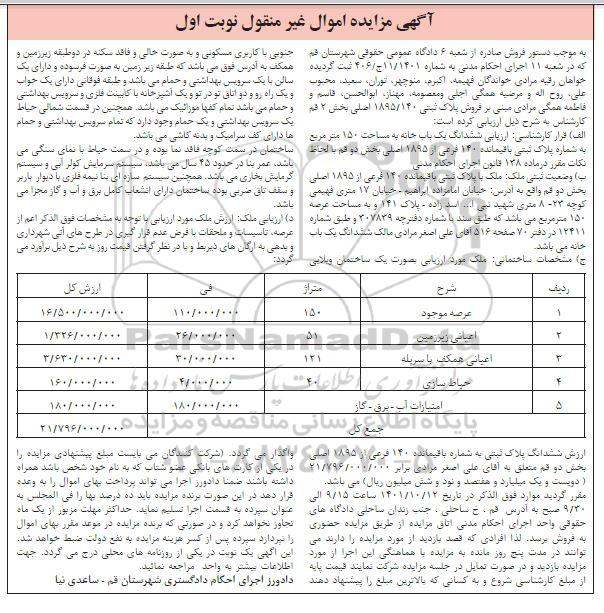 آگهی مزایده اموال غیر منقول نوبت اول
به موجب دستور فروش صادره از شعبه ۶ دادگاه عمومی حقوقی شهرستان قم
که در شعبه ۱۱ اجرای احکام مدنی به شماره ۱۱/۱۴۰۱ج/۴۰۶ ثبت گردیده
خواهان رقیه مرادی خواندگان فهیمه، اکبرم، منوچهر، توران، سعید، محبوب
علی، روح اله و مرضیه همگی اجلی ومعصومه، مهناز، ابوالحسن، قاسم و
فاطمه همگی مرادی مبنی بر فروش پلاک ثبتی ۱۸۹۵/۱۴۰ اصلی بخش ۲ قم
کارشناس به شرح ذیل ارزیابی کرده است:
الف) قرار کارشناسی: ارزیابی ششدانگ یک باب خانه به مساحت ۱۵۰ متر مربع
به شماره پلاک ثبتی باقیمانده ۱۴۰ فرعی از ۱۸۹۵ اصلی بخش دو قم با لحاظ
نکات مقرر درماده ۱۳۸ قانون اجرای احکام مدنی
ب) وضعیت ثبتی ملک: ملک با پلاک ثبتی باقیمانده ۱۴۰ فرعی از ۱۸۹۵ اصلی
بخش دو قم واقع به آدرس: خیابان امامزاده ابراهیم - خیابان ۱۷ متری فهیمی
کوچه ۲۳- ۸ متری شهید نبی ا... اسد زاده - پلاک ۱۴۱ و به مساحت عرصه
۱۵۰ مترمربع می باشد که طبق سند با شماره دفترچه ۳۰۷۸۳۹ و طبق شماره
۱۲۴۱۱ در دفتر ۷۰ صفحه ۵۱۶ آقای علی اصغر مرادی مالک ششدانگ یک باب
خانه می باشد.
ج) مشخصات ساختمانی: ملک مورد ارزیابی بصورت یک ساختمان ویلایی
جنوبی با کاربری مسکونی و به صورت خالی و فاقد سکنه در دوطبقه زیرزمین و
همکف به آدرس فوق می باشد که طبقه زیر زمین به صورت فرسوده و دارای یک
سالن با یک سرویس بهداشتی و حمام می باشد و طبقه فوقانی دارای یک خواب
و یک راه رو و دو اتاق تو در تو و یک آشپزخانه با کابینت فلزی و سرویس بهداشتی
و حمام می باشد تمام کفها موزائیک می باشد. همچنین در قسمت شمالی حیاط
یک سرویس بهداشتی و یک حمام وجود دارد که تمام سرویس بهداشتی و حمام
ها دارای کف سرامیک و بدنه کاشی می باشد.
ساختمان در سمت کوچه فاقد نما بوده و در سمت حیاط با نمای سنگی می
باشد، عمر بنا در حدود ۴۵ سال می باشد، سیستم سرمایش کولر آبی و سیستم
گرمایش بخاری می باشد. همچنین سیستم سازه ای بنا نیمه فلزی با دیوار باربر
و سقف تاق ضربی بوده ساختمان دارای انشعاب کامل برق و آب و گاز مجزا می
باشد.
د) ارزیابی ملک: ارزش ملک مورد ارزیابی با توجه به مشخصات فوق الذکر اعم از
عرصه، تاسیسات و ملحقات با فرض عدم قرار گیری در طرح های آتی شهرداری
و بدهی به ارگان های ذیربط و با در نظر گرفتن قیمت روز به شرح ذیل برآورد می
گردد:
ردیف شرح متراژ فی ارزش کل
۱ عرصه موجود ۱۵۰ ۱۱۰/۰۰۰/۰۰۰ ۱۶/۵۰۰/۰۰۰/۰۰۰
۲ اعیانی زیرزمین ۵۱ ۲۶/۰۰۰/۰۰۰ ۱/۳۲۶/۰۰۰/۰۰۰
۳ اعیانی همکف با سرپله ۱۲۱ ۳۰/۰۰۰/۰۰۰ ۳/۶۳۰/۰۰۰/۰۰۰
۴ حیاط سازی ۴۰ ۴/۰۰۰/۰۰۰ ۱۶۰/۰۰۰/۰۰۰
۵ امتیازات آب - برق - گاز ۱۸۰/۰۰۰/۰۰۰ ۱۸۰/۰۰۰/۰۰۰
جمع کل ۲۱/۷۹۶/۰۰۰/۰۰۰
ارزش ششدانگ پلاک ثبتی به شماره باقیمانده ۱۴۰ فرعی از ۱۸۹۵ اصلی
بخش دو قم متعلق به آقای علی اصغر مرادی برابر ۲۱/۷۹۶/۰۰۰/۰۰۰
( دویست و یک میلیارد و هفتصد و نود و شش میلیون ریال) می باشد.
مقرر گردید موارد فوق الذکر در تاریخ ۱۴۰۱/۱۰/۱۲ ساعت ۹/۱۵ الی
۹/۳۰ صبح به آدرس قم ، خ ساحلی ، جنب زندان ساحلی دادگاه های
حقوقی واحد اجرای احکام مدنی اتاق مزایده از طریق مزایده حضوری
به فروش برسد. لذا افرادی که قصد بازدید از مورد مزایده را دارند می
توانند در مدت پنج روز مانده به مزایده با هماهنگی این اجرا از مورد
مزایده بازدید و در صورت تمایل در جلسه مزایده شرکت نمایند قیمت پایه
از مبلغ کارشناسی شروع و به کسانی که بالاترین مبلغ را پیشنهاد دهند
واگذار می گردد. (شرکت کنندگان می بایست مبلغ پیشنهادی مزایده را
در یکی از کارت های بانکی عضو شتاب که به نام خود شخص باشد همراه
داشته باشند ضمنا دادورز اجرا می تواند پرداخت بهای اموال را به وعده
قرار دهد در این صورت برنده مزایده باید ده درصد بها را فی المجلس به
عنوان سپرده به قسمت اجرا تسلیم نماید. حداکثر مهلت مزبور از یک ماه
تجاوز نخواهد کرد و در صورتی که برنده مزایده در موعد مقرر بهای اموال
را نپردازد سپرده پس از کسر هزینه مزایده به نفع دولت ضبط خواهد شد.
این اگهی یک نوبت در یکی از روزنامه های محلی درج می گردد. جهت
اطلاعات بیشتر به واحد مراجعه نمائید.
دادورز اجرای احکام دادگستری شهرستان قم - ساعدی نیا
ParsNamadData
پایگاه اطلاع رسانی مناقصه و مزایده